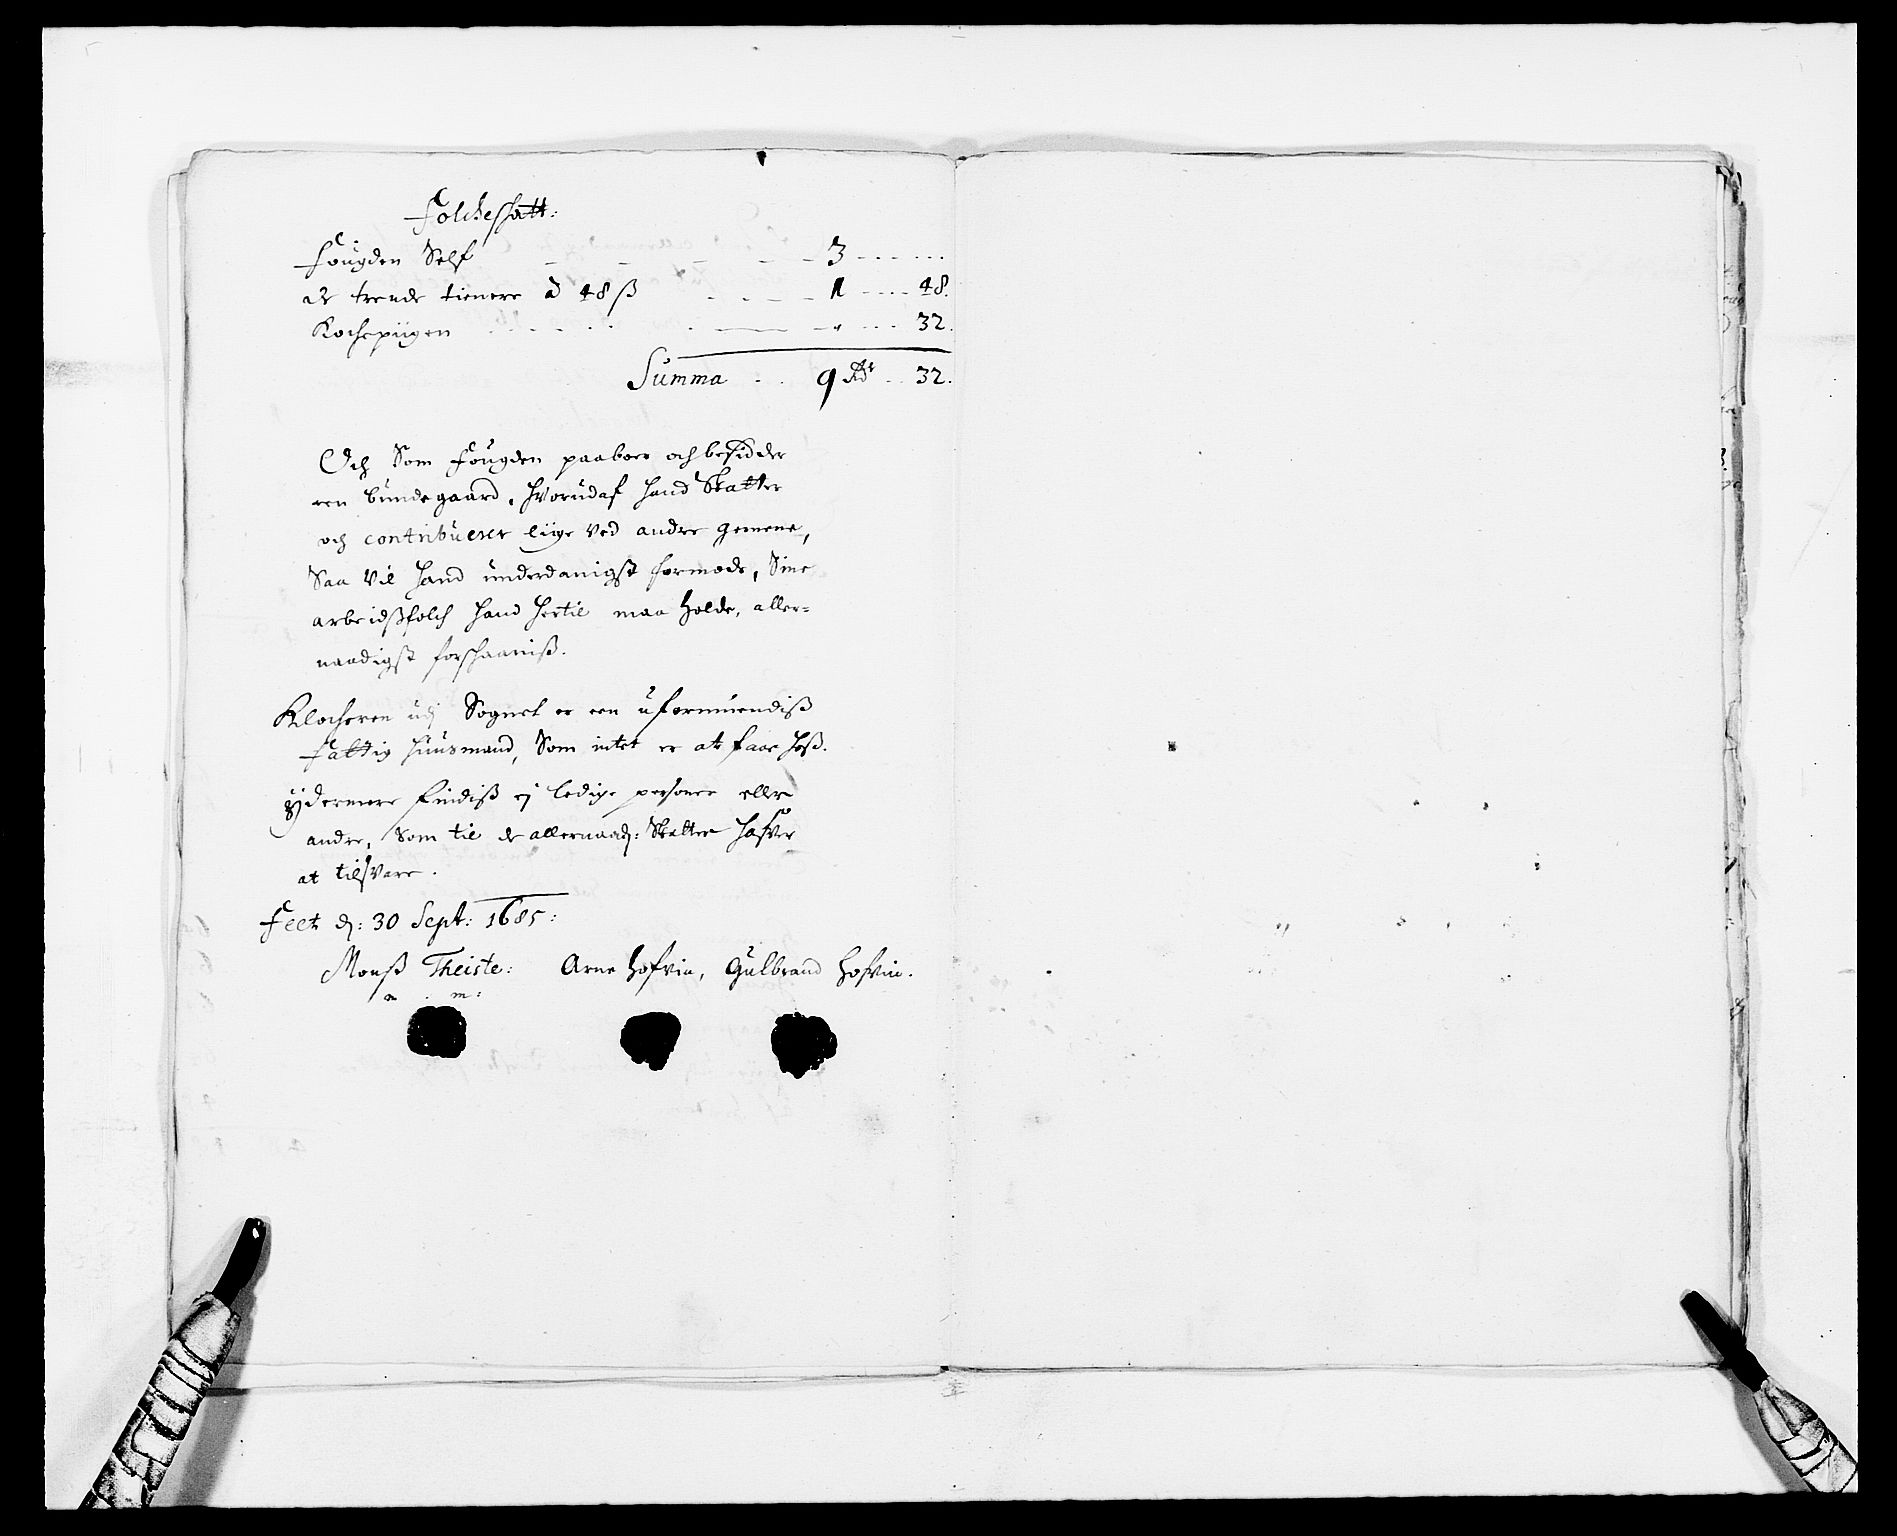 Folcheschatt:
Fougden Self - - - - - 3 - - - ...
de trende tienere à 48 ß - - - - 1 - - - 48.
Kochepiigen - - - - - - " - - - 32.
Summa - - 9 Rdr - - 32.
Och Som Fougden paaboer och besidder
een bundegaard, hvorudaf hand Skatter
och contribuerer liige ved andre gemene,
Saa vil hand underdanigst formode, Sine
arbeidsßfolch hand hertil maa holde, aller-
naadigst forschaaniß.
Klocheren udj Sognet er een uformuendiß
Fattig huusmand, Som intet er at faae hoß.
Ydermere findiß ej ledige personer eller
andre, Som til de allernaad: Skatter hafver
at tilsvare.
Feet d: 30 Sept: 1685:
Monß Theiste: Arne Hofvin, Gulbrand Hofvin.
m m: